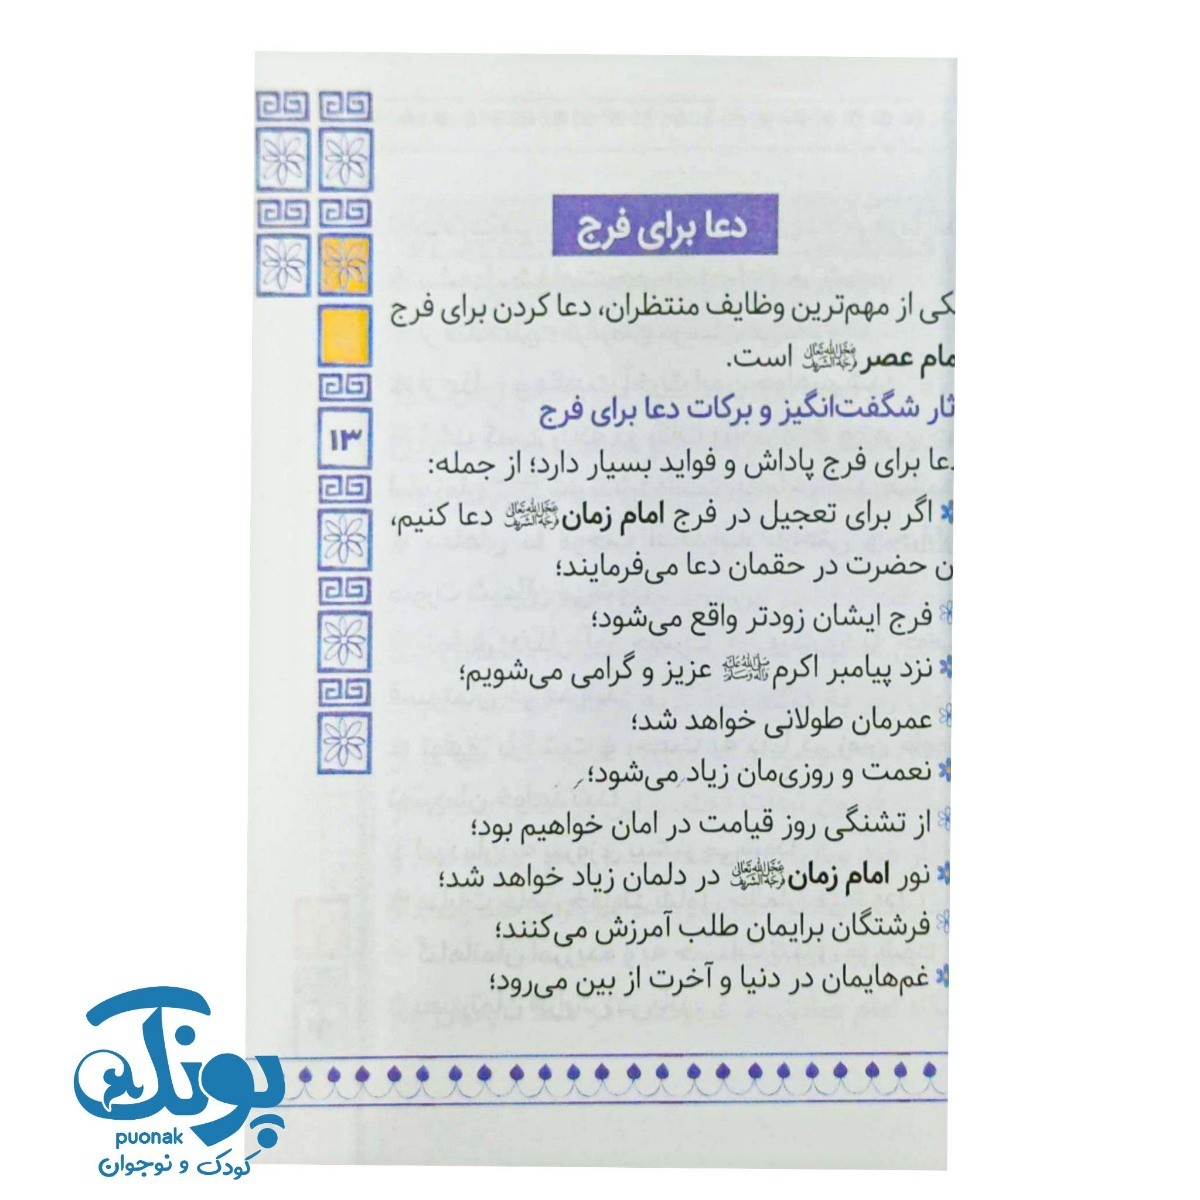 دعا برای فرج
یکی از مهم‌ترین وظایف منتظران، دعا کردن برای فرج
امام عصر عجل الله تعالی فرجه الشریف است.
آثار شگفت‌انگیز و برکات دعا برای فرج
دعا برای فرج پاداش و فواید بسیار دارد؛ از جمله:
اگر برای تعجیل در فرج امام زمان عجل الله تعالی فرجه الشریف دعا کنیم،
آن حضرت در حقمان دعا می‌فرمایند؛
فرج ایشان زودتر واقع می‌شود؛
نزد پیامبر اکرم صلی الله علیه وآله وسلم عزیز و گرامی می‌شویم؛
عمرمان طولانی خواهد شد؛
نعمت و روزی‌مان زیاد می‌شود؛
از تشنگی روز قیامت در امان خواهیم بود؛
نور امام زمان عجل الله تعالی فرجه الشریف در دلمان زیاد خواهد شد؛
فرشتگان برایمان طلب آمرزش می‌کنند؛
غم‌هایمان در دنیا و آخرت از بین می‌رود؛
۱۳
پونک
puonak
کودک و نوجوان